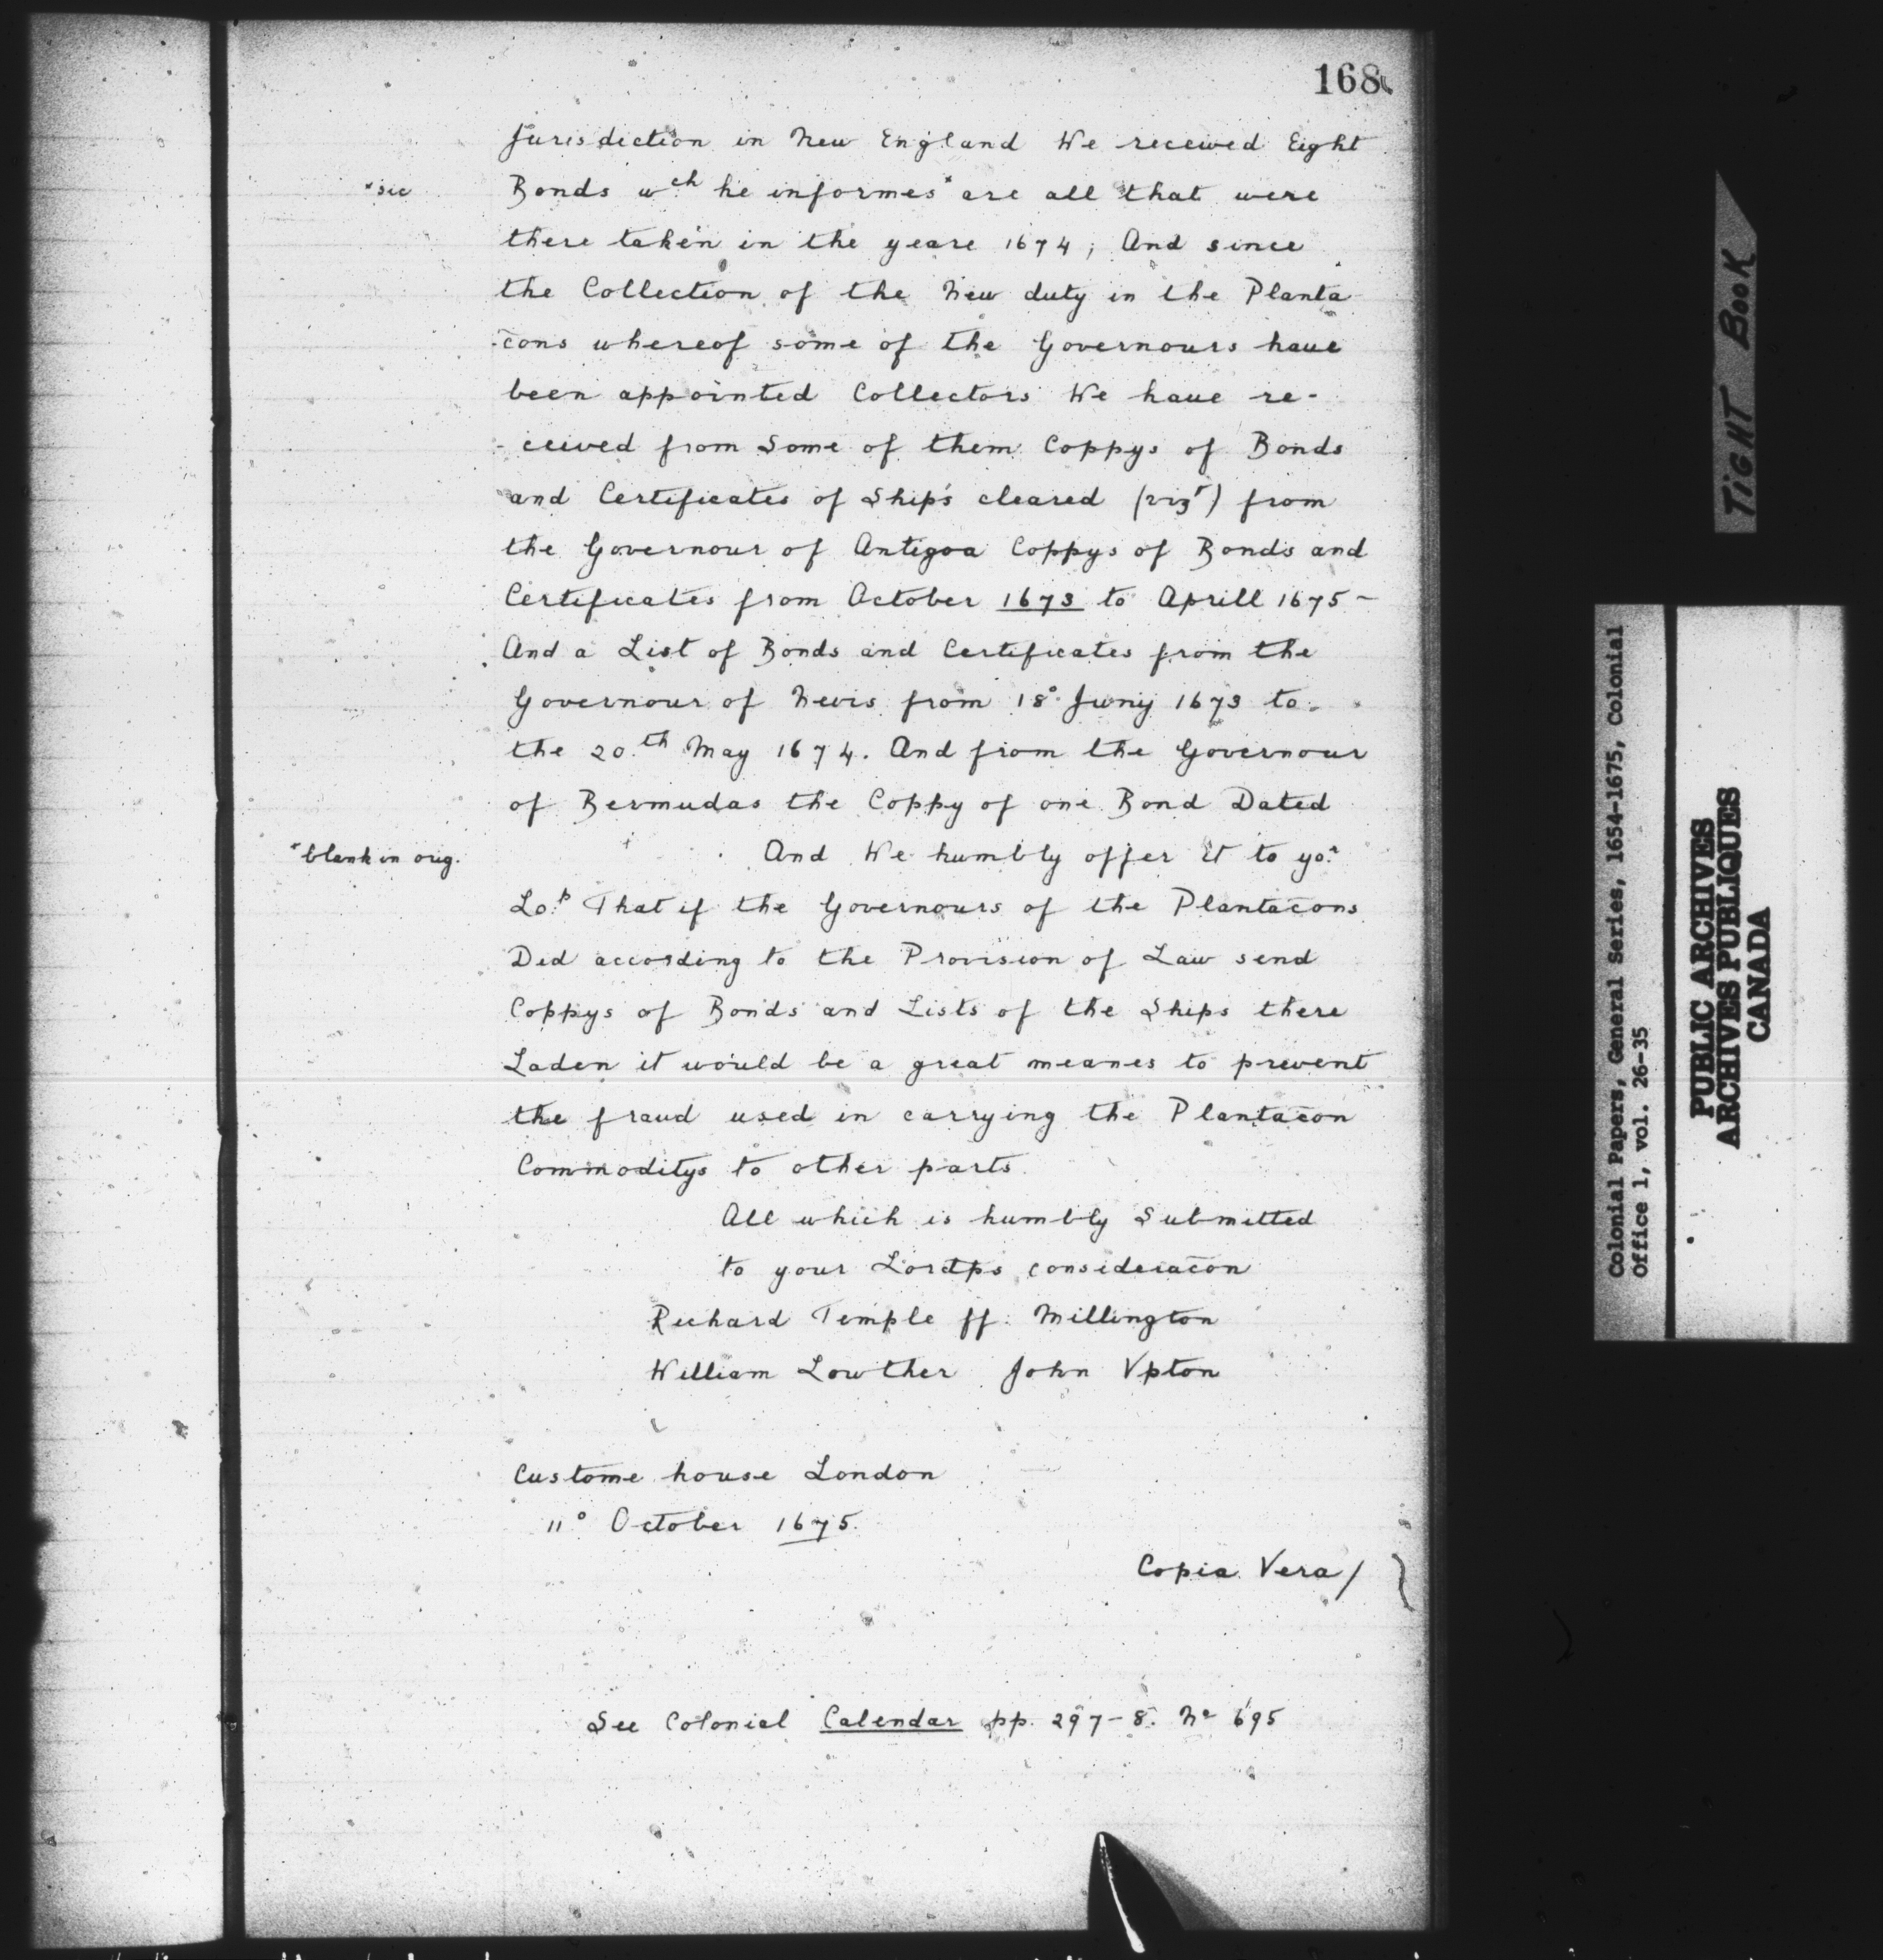 168
Jurisdiction in New England We received Eight
*sic
Bonds wch he informes* are all that were
there taken in the yeare 1674; And since
the Collection of the New duty in the Planta
-c̄ons whereof some of the Governours have
been appointed Collectors We have re-
-ceived from Some of them Coppys of Bonds
and Certificates of Ship's cleared (vizt) from
the Governour of Antigoa Coppys of Bonds and
Certificates from October 1673 to Aprill 1675 -
And a List of Bonds and Certificates from the
Governour of Nevis from 18° Junij 1673 to
the 20.th May 1674. And from the Governour
of Bermudas the Coppy of one Bond Dated
*blank in orig.
And We humbly offer it to yo.r
Lo.p That if the Governours of the Plantac̄ons
Did according to the Provision of Law send
Coppys of Bonds and Lists of the Ships there
Laden it would be a great meanes to prevent
the fraud used in carrying the Plantac̄on
Commoditys to other parts
All which is humbly Submitted
to your Lordps considerac̄on
Richard Temple ff. Millington
William Lowther John Vpton
Custome house London
11° October 1675.
Copia Vera/
See Colonial Calendar pp. 297-8. No 695
TIGHT BOOK
Colonial Papers, General Series, 1654-1675, Colonial
Office 1, vol. 26-35
PUBLIC ARCHIVES
ARCHIVES PUBLIQUES
CANADA